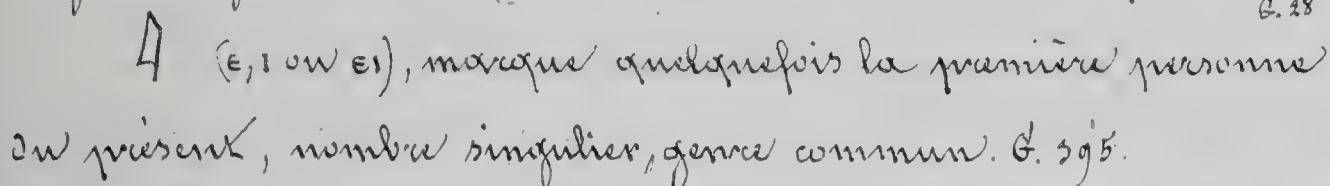 G. 28
𓇋 (ⲉ, ⲓ ou ⲉⲓ), marque quelquefois la première personne
du présent, nombre singulier, genre commun. G. 395.